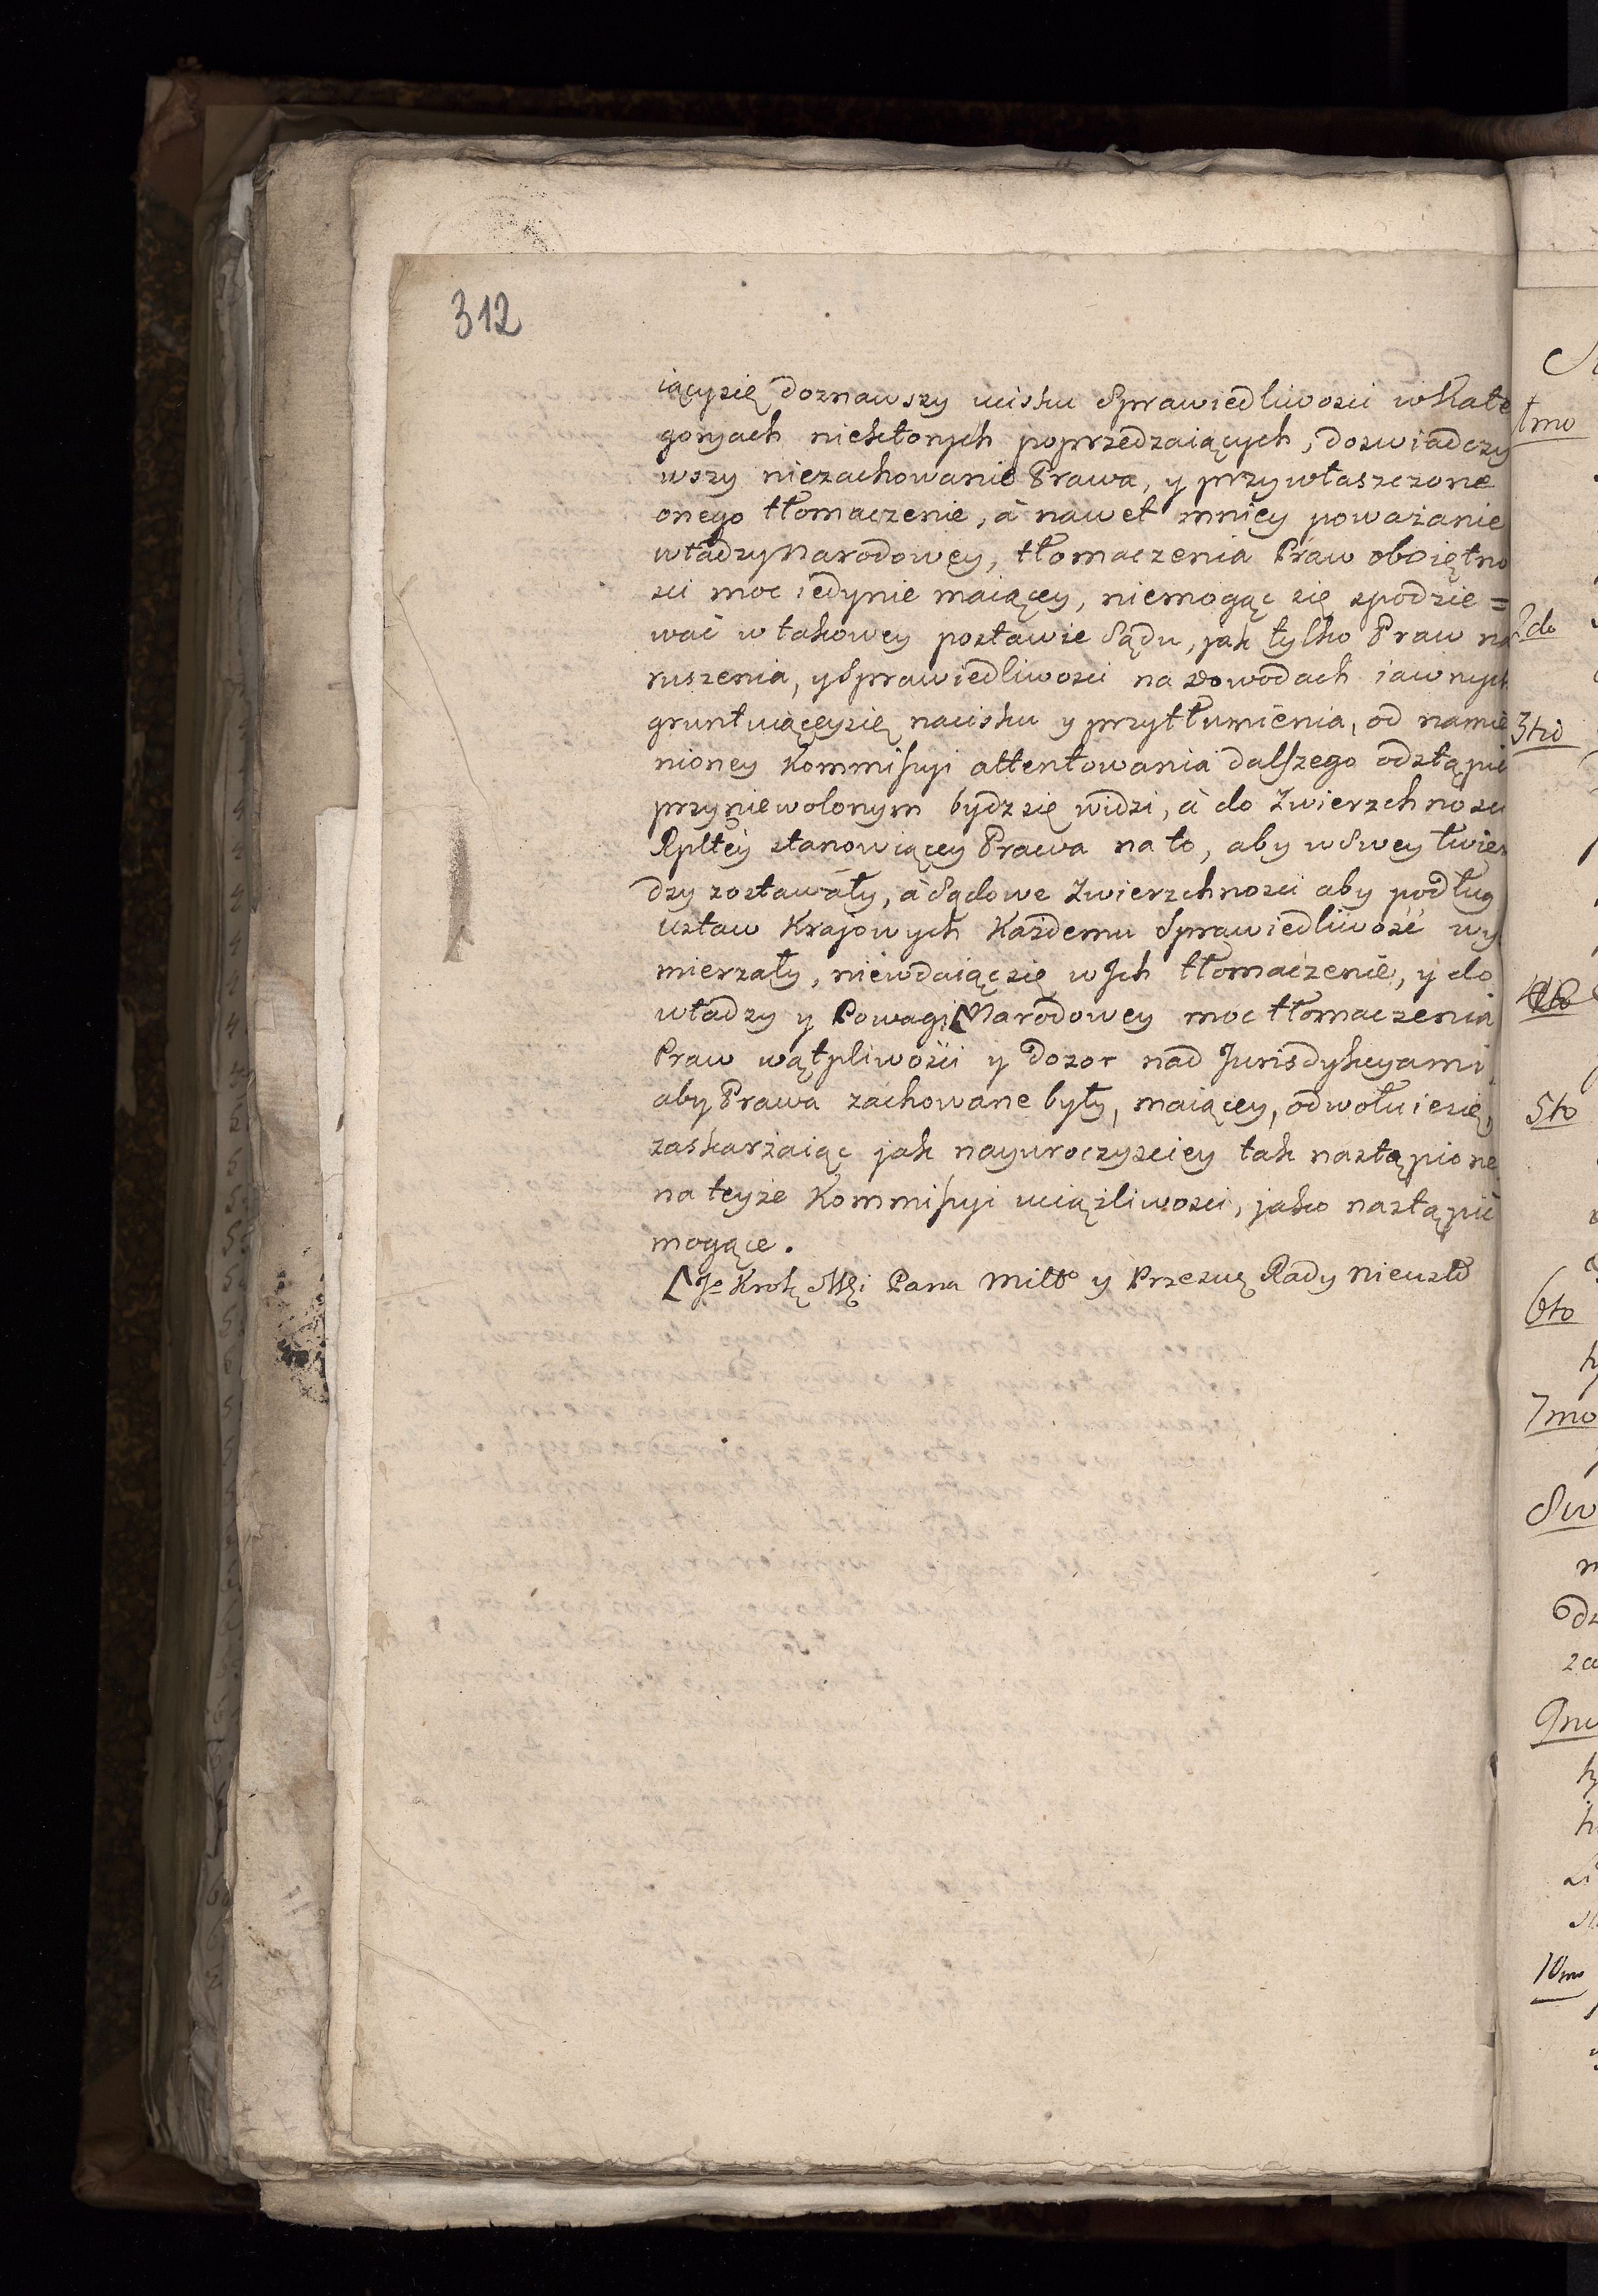 312
iącysię doznawszy ucisku Sprawiedliwosci w Kate
goryach niektorych poprzedzaiących, doswiadczy
wszy niezachowanie Prawa, y przywłaszczone
onego tłomaczenie, à nawet mniey poważanie
władzy Narodowey, tłomaczenia Praw oboiętno
sci moc iedynie maiącey, niemogąc się spodzie=
wać w takowey postawie Sądu, jak tylko Praw na
ruszenia, y Sprawiedliwosci na dowodach iawnych
gruntuiąceysię nacisku y przytłumienia, od namie
nioney Kommissyi attentowania dalszego odstąpić
przyniewolonym bydz się widzi, à do Zwierzchnosci
Rpltey stanowiącey Prawa na to, aby w swey twier
dzy zostawały, à Sądowe Zwierzchnosci aby podług
ustaw Krajowych Kazdemu Sprawiedliwość wy
mierzały, niewdaiąc się w Ich tłomaczenie, y do
władzy y Powagi Narodowey moc tłomaczenia
Praw wątpliwosci y dozor nad Jurisdykcyami
aby Prawa zachowane były, maiącey, odwołuiesię,
zaskarżaiąc jak nayuroczysciey tak nastąpione
na teyże Kommissyi uciążliwosci, jako nastąpić
mogące.
Je Krolę Msci Pana Miltto y Przeswę Rady Nieustto
1mo
2do
3tio
4to
5to
6to
7mo
8vo
9no
10mo